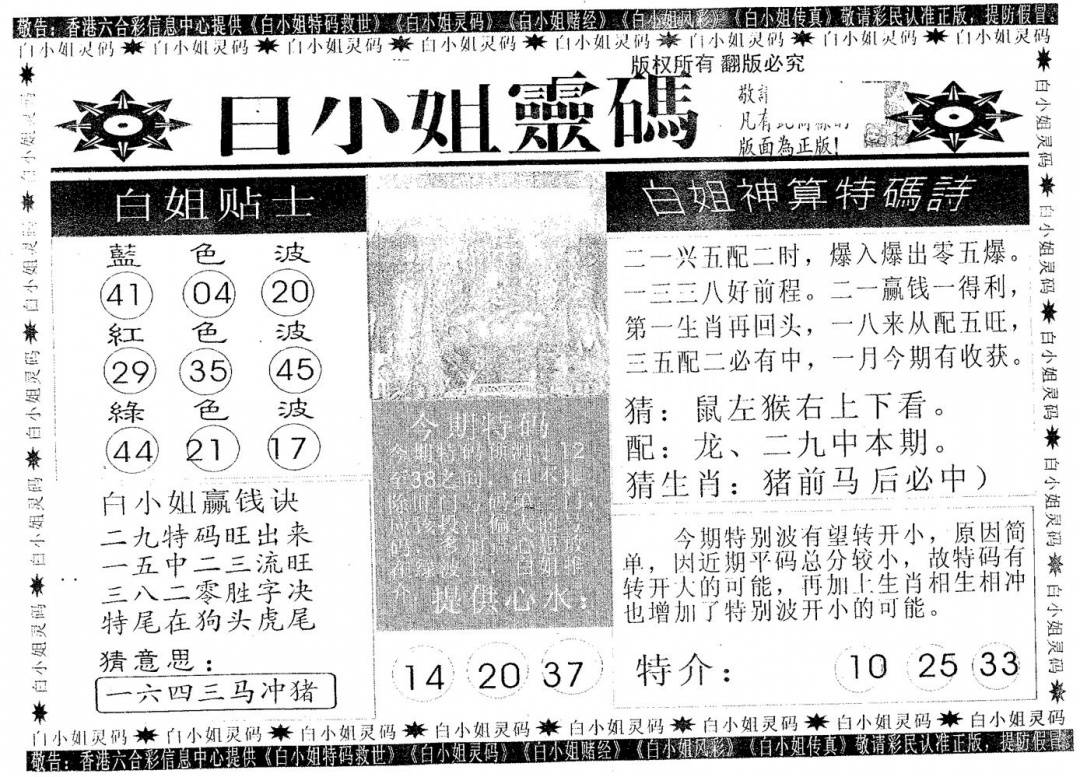 敬告：香港六合彩信息中心提供《白小姐特码救世》《白小姐灵码》《白小姐赌经》《白小姐风彩》《白小姐传真》敬请彩民认准正版，提防假冒。
白小姐灵码 白小姐灵码 白小姐灵码 白小姐灵码 白小姐灵码 白小姐灵码 白小姐灵码 白小姐灵码
版权所有 翻版必究
白小姐靈碼
敬請
凡有
版面為正版!
白姐贴士
藍色波
41 04 20
紅色波
29 35 45
綠色波
44 21 17
白小姐赢钱诀
二九特码旺出来
一五中二三流旺
三八二零胜字决
特尾在狗头虎尾
猜意思：
一六四三马冲猪
今期特码
提供心水：
14 20 37
白姐神算特碼詩
二一兴五配二时，爆入爆出零五爆。
一三三八好前程。二一赢钱一得利，
第一生肖再回头，一八来从配五旺，
三五配二必有中，一月今期有收获。
猜：鼠左猴右上下看。
配：龙、二九中本期。
猜生肖：猪前马后必中）
今期特别波有望转开小，原因简
单，因近期平码总分较小，故特码有
转开大的可能，再加上生肖相生相冲
也增加了特别波开小的可能。
特介：
10 25 33
白小姐灵码 白小姐灵码 白小姐灵码 白小姐灵码 白小姐灵码
白小姐灵码 白小姐灵码 白小姐灵码 白小姐灵码 白小姐灵码
白小姐灵码 白小姐灵码 白小姐灵码 白小姐灵码 白小姐灵码 白小姐灵码 白小姐灵码 白小姐灵码
敬告：香港六合彩信息中心提供《白小姐特码救世》《白小姐灵码》《白小姐赌经》《白小姐风彩》《白小姐传真》敬请彩民认准正版，提防假冒